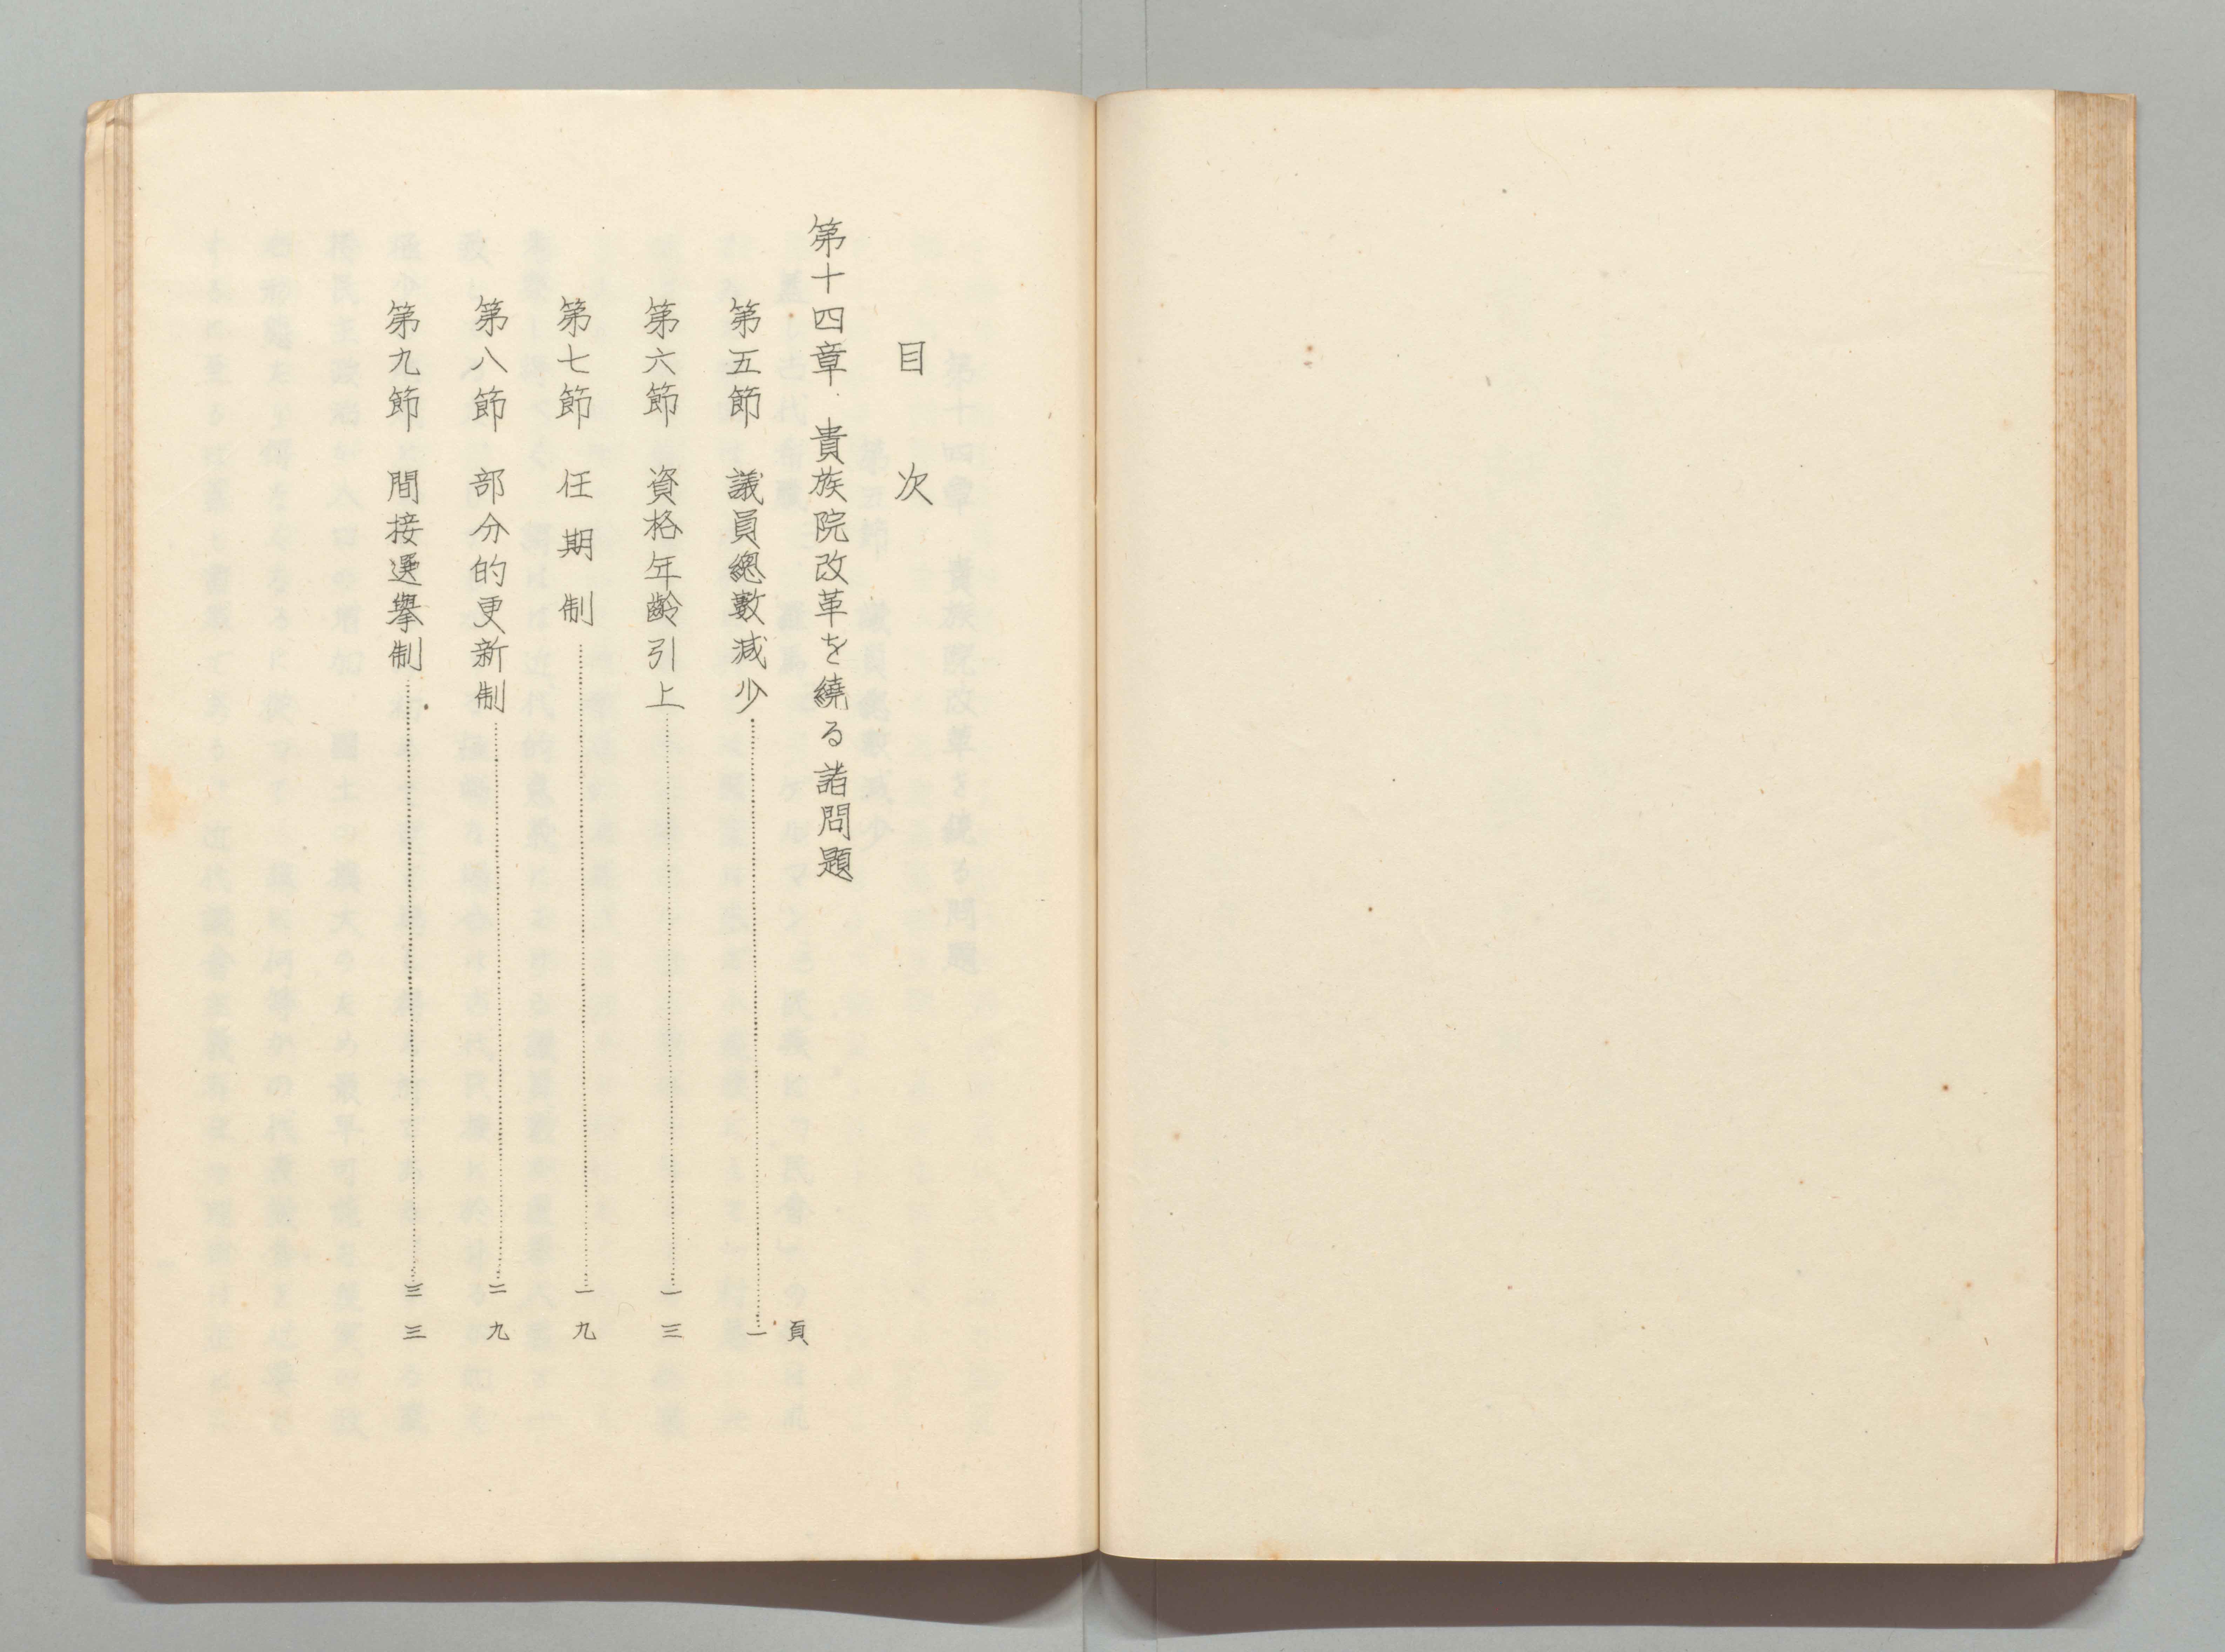 目次
第十四章 貴族院改革を繞る諸問題
頁
第五節 議員總數減少……一
第六節 資格年齢引上……一三
第七節 任期制……一九
第八節 部分的更新制……二九
第九節 間接選擧制……三三